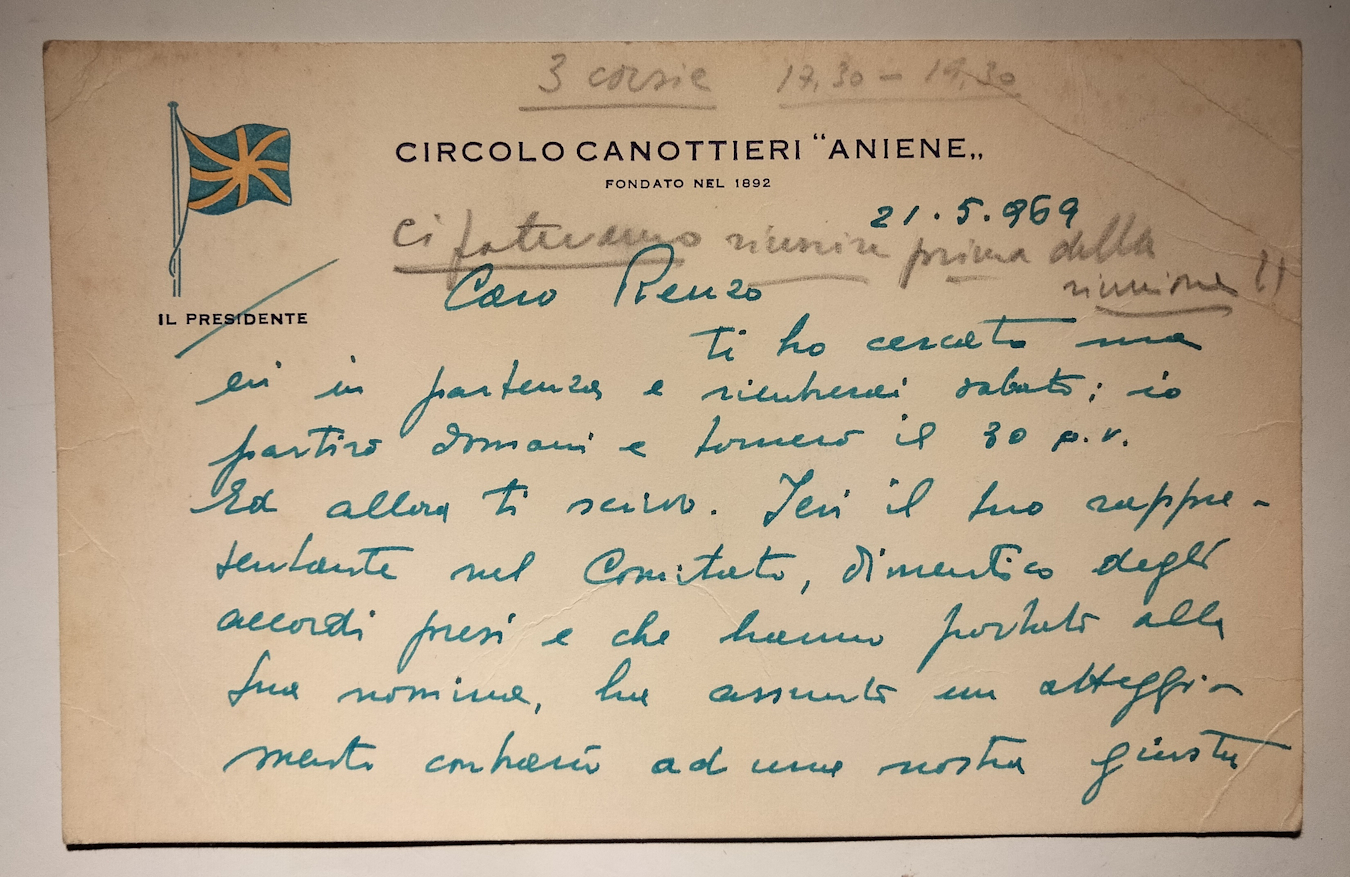 3 corsie 17,30 - 19,30
CIRCOLO CANOTTIERI "ANIENE„
FONDATO NEL 1892
21.5.969
ci prima della
riunione !!
Caro Renzo
IL PRESIDENTE
ti ho cercato ma
eri in partenza e rientrerai sabato; io
partirò domani e tornerò il 30 p.v.
Ed allora ti scrivo. Ieri il tuo rappre-
sentante nel Comitato, dimentico degli
accordi presi e che hanno portato alla
Sua nomina, ha assunto un atteggia-
mento contrario ad una nostra giusta